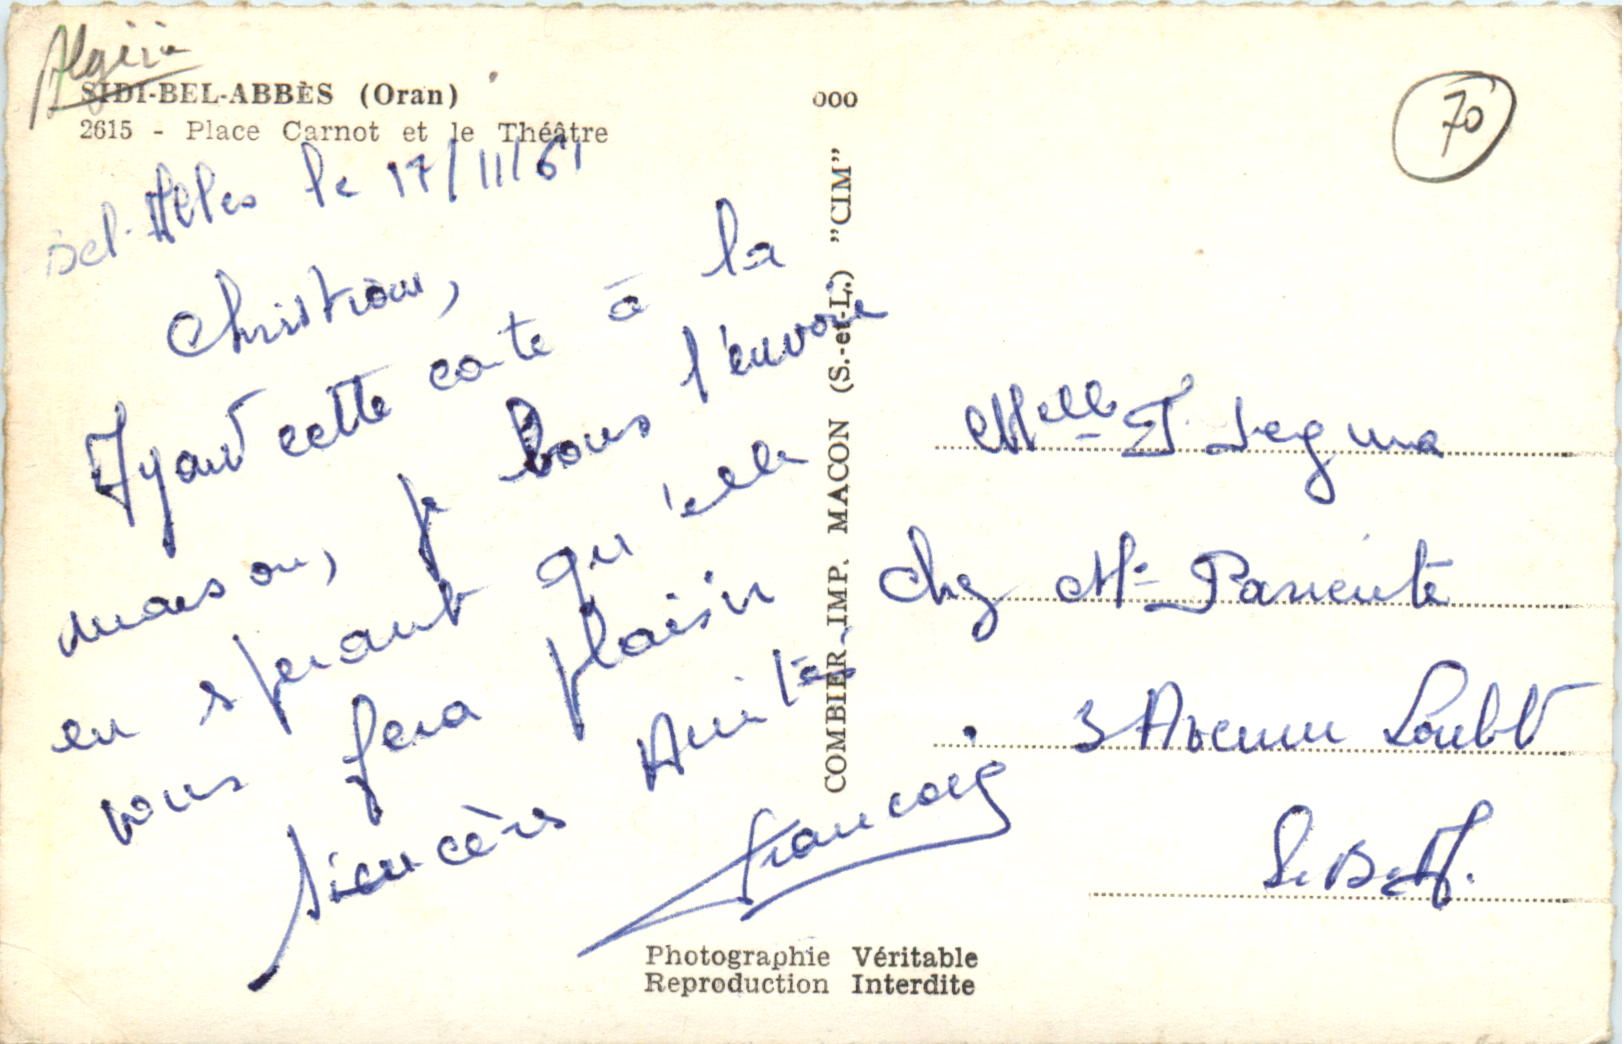 Algérie
SIDI-BEL-ABBÈS (Oran)
2615 - Place Carnot et le Théâtre
000
70
Bel-Abbes le 17/11/61
Christiane,
Ayant cette carte à la
maison, je vous l'envoie
en sperant qu'elle
vous fera plaisir
Sincères Amitiés
Francois
COMBIER IMP. MACON (S.-et-L.) "CIM"
Melle J.
Chez Mr
3 Avenue Loubet
S. B. A.
Photographie Véritable
Reproduction Interdite